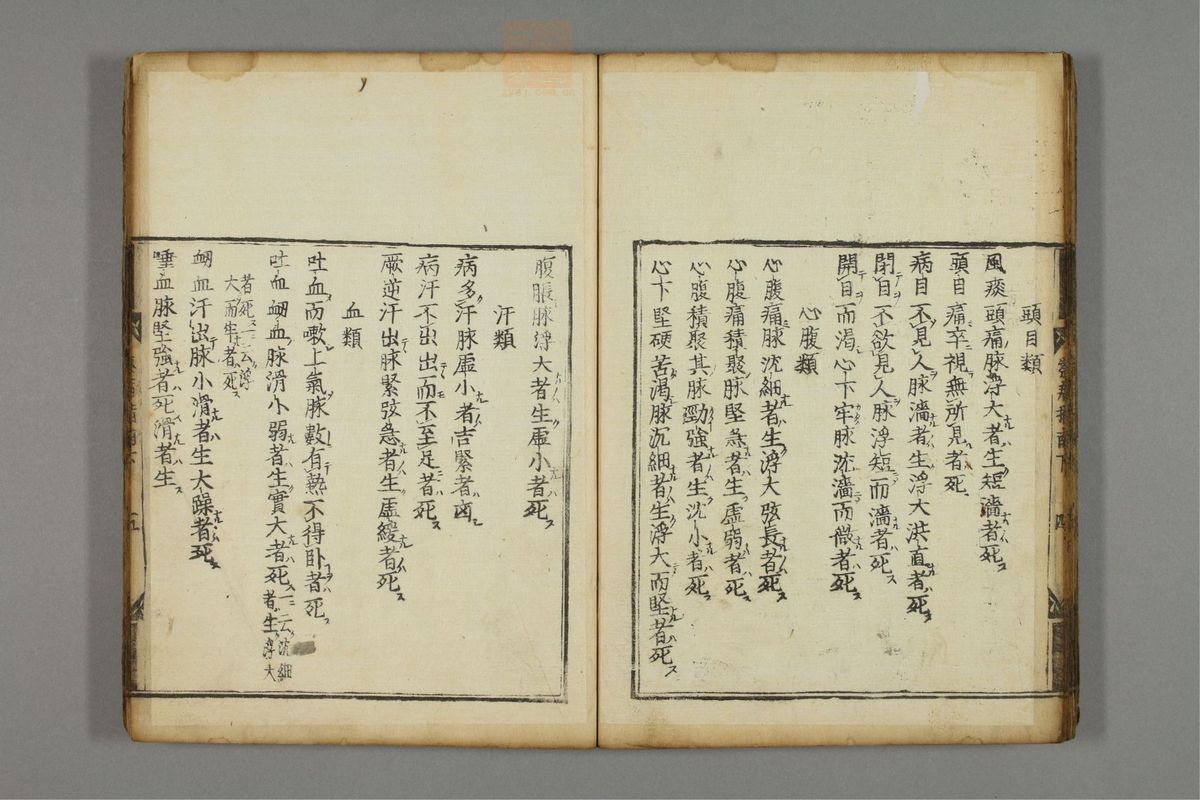 頭目類
風痰頭痛脉浮大者生短濇者死
頭目痛卒視無所見者死
病目不見人脉濇者生浮大洪直者死
閉目不欲見人脉浮短而濇者死
開目而渴心下牢脉沈濇而微者死
心腹類
心腹痛脉沈細者生浮大弦長者死
心腹痛積聚脉堅急者生虛弱者死
心腹積聚其脉勁強者生沈小者死
心下堅硬苦渴脉沉細者生浮大而堅者死
腹脹脉浮大者生虛小者死
汗類
病多汗脉虛小者吉緊者凶
病汗不出出而不至足者死
厥逆汗出脉緊弦急者生虛緩者死
血類
吐血而嗽上氣脉數有熱不得卧者死
吐血衂血脉滑小弱者生實大者死一云沈細者生浮大
者死一云浮大而牢者死
衂血汗出脉小滑者生大躁者死
唾血脉堅強者死滑者生